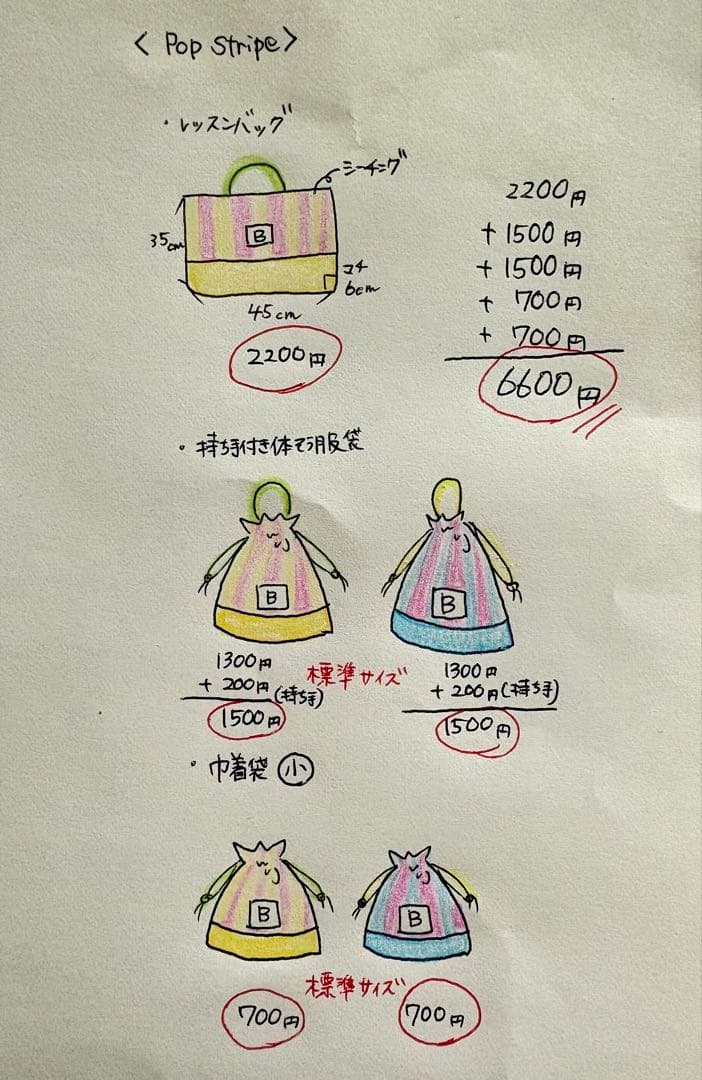 < Pop Stripe >
・レッスンバッグ
シーチング
35cm
B
マチ
6cm
45cm
2200円
2200円
+ 1500円
+ 1500円
+ 700円
+ 700円
6600円
・持ち手付き体そう服袋
B
B
1300円
+ 200円(持ち手)
1500円
標準サイズ
1300円
+ 200円(持ち手)
1500円
・巾着袋 小
B
B
標準サイズ
700円
700円